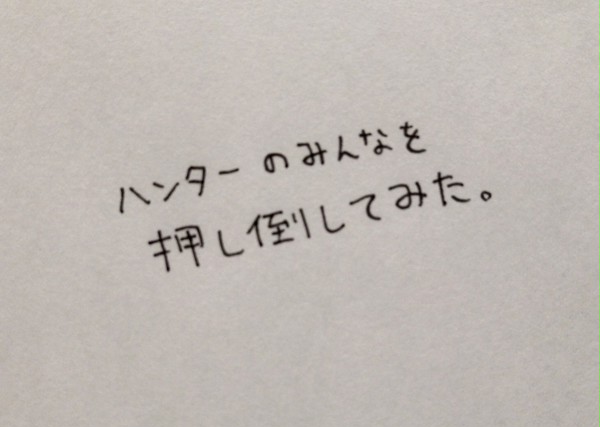 ハンターのみんなを
押し倒してみた。